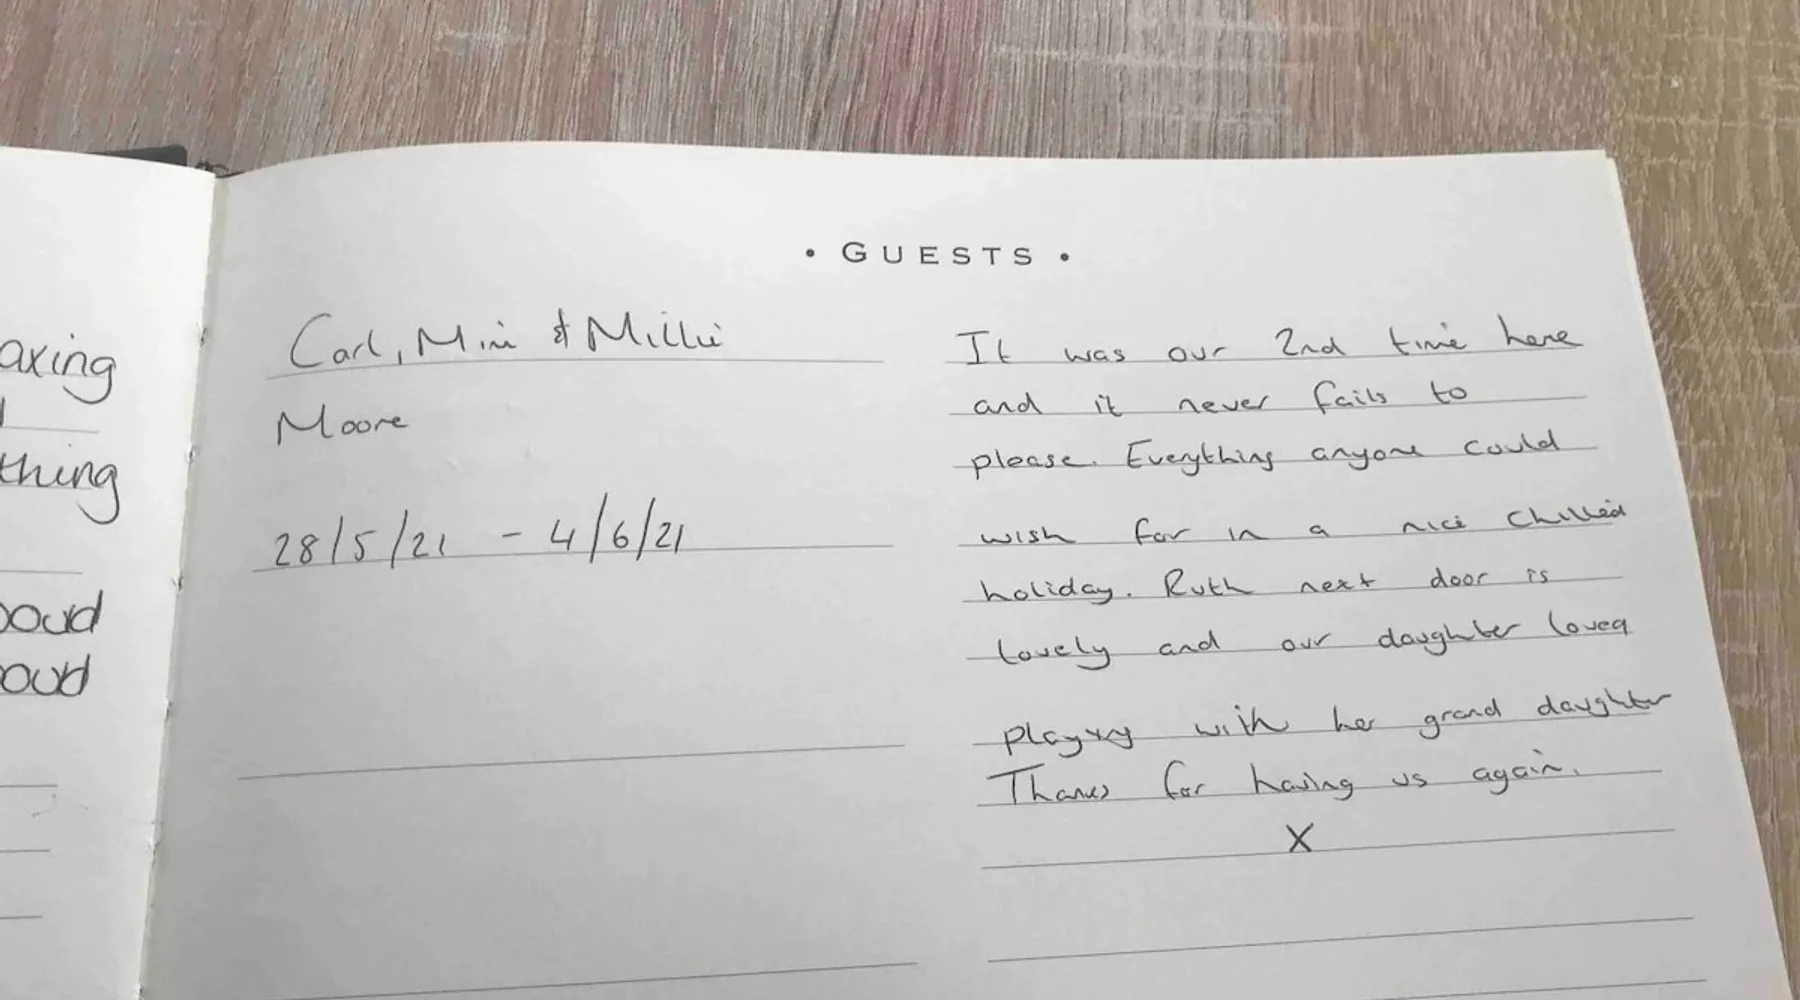 axing
thing
oud
oud
• GUESTS •
Carl, Mimi & Millie
Moore
28/5/21 - 4/6/21
It was our 2nd time here
and it never fails to
please. Everything anyone could
wish for in a nice chilled
holiday. Ruth next door is
lovely and our daughter loved
playing with her grand daughter
Thanks for having us again.
X